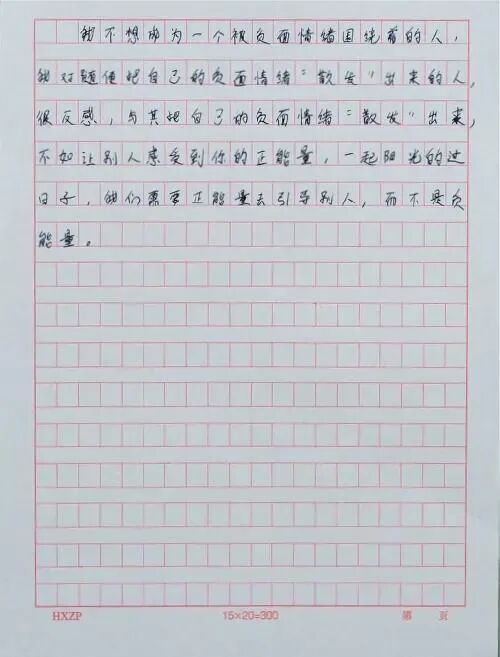 我不想成为一个被负面情绪围绕着的人，
我对随便把自己的负面情绪“散发”出来的人，
很反感，与其把自己的负面情绪“散发”出来，
不如让别人感受到你的正能量，一起阳光的过
日子，我们需要正能量去引导别人，而不是负
能量。
HXZP 15×20=300 第 页